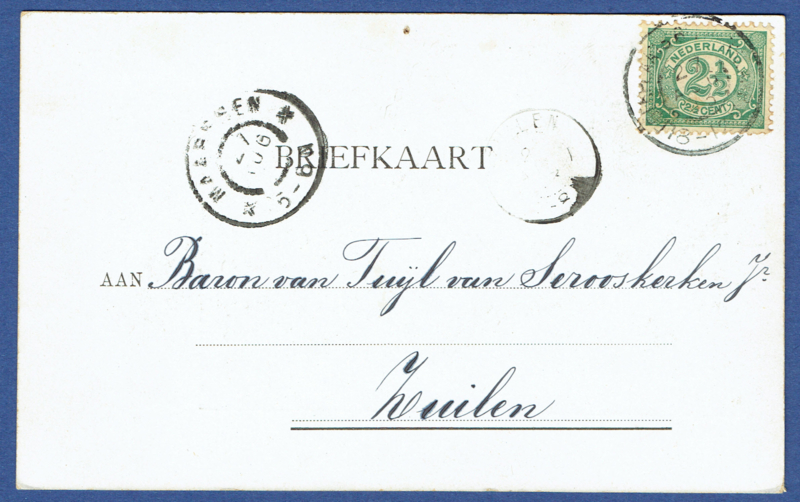 NEDERLAND
2½
2½ CENT
MAARSSEN
5-8V
BRIEFKAART
AAN Baron van Tuijl van Serooskerken Jr.
Zuilen